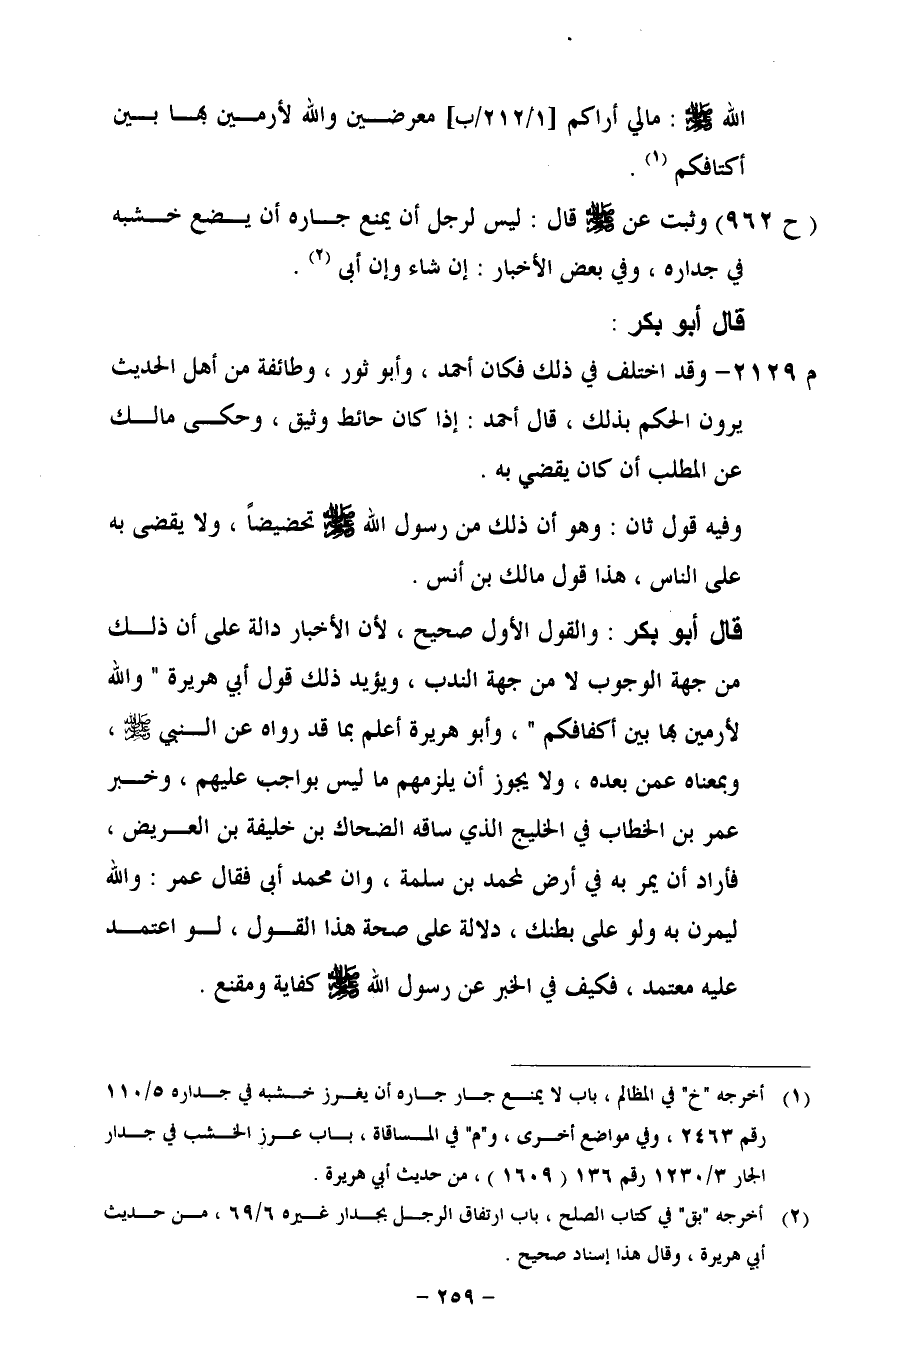 الله ﷺ : مالي أراكم [١/٢١٢/ب] معرضين والله لأرمين بها بين
أكتافكم (١) .
( ح ٩٦٢) وثبت عن ﷺ قال : ليس لرجل أن يمنع جاره أن يضع خشبه
في جداره ، وفي بعض الأخبار : إن شاء وإن أبى (٢) .
قال أبو بكر :
م ٢١٢٩- وقد اختلف في ذلك فكان أحمد ، وأبو ثور ، وطائفة من أهل الحديث
يرون الحكم بذلك ، قال أحمد : إذا كان حائط وثيق ، وحكى مالك
عن المطلب أن كان يقضي به .
وفيه قول ثان : وهو أن ذلك من رسول الله ﷺ تحضيضاً ، ولا يقضى به
على الناس ، هذا قول مالك بن أنس .
قال أبو بكر : والقول الأول صحيح ، لأن الأخبار دالة على أن ذلك
من جهة الوجوب لا من جهة الندب ، ويؤيد ذلك قول أبي هريرة " والله
لأرمين بها بين أكفافكم " ، وأبو هريرة أعلم بما قد رواه عن النبي ﷺ ،
وبمعناه عمن بعده ، ولا يجوز أن يلزمهم ما ليس بواجب عليهم ، وخبر
عمر بن الخطاب في الخليج الذي ساقه الضحاك بن خليفة بن العريض ،
فأراد أن يمر به في أرض لمحمد بن سلمة ، وان محمد أبى فقال عمر : والله
ليمرن به ولو على بطنك ، دلالة على صحة هذا القول ، لو اعتمد
عليه معتمد ، فكيف في الخبر عن رسول الله ﷺ كفاية ومقنع .
(١) أخرجه "خ" في المظالم ، باب لا يمنع جار جاره أن يغرز خشبه في جداره ١١٠/٥
رقم ٢٤٦٣ ، وفي مواضع أخرى ، و"م" في المساقاة ، باب عرز الخشب في جدار
الجار ١٢٣٠/٣ رقم ١٣٦ ( ١٦٠٩ ) ، من حديث أبي هريرة .
(٢) أخرجه "بق" في كتاب الصلح ، باب ارتفاق الرجل بجدار غيره ٦٩/٦ ، من حديث
أبي هريرة ، وقال هذا إسناد صحيح .
- ٢٥٩ -